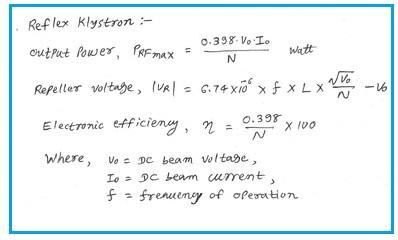 Reflex Klystron :-
output power, PRFmax = 0.398·Vo·Io / N watt
Repeller voltage, |VR| = 6.74×10⁻⁶ × f × L × √Vo / N − Vo
Electronic efficiency, η = 0.398 / N × 100
Where, Vo = DC beam voltage,
Io = DC beam current,
f = frequency of operation